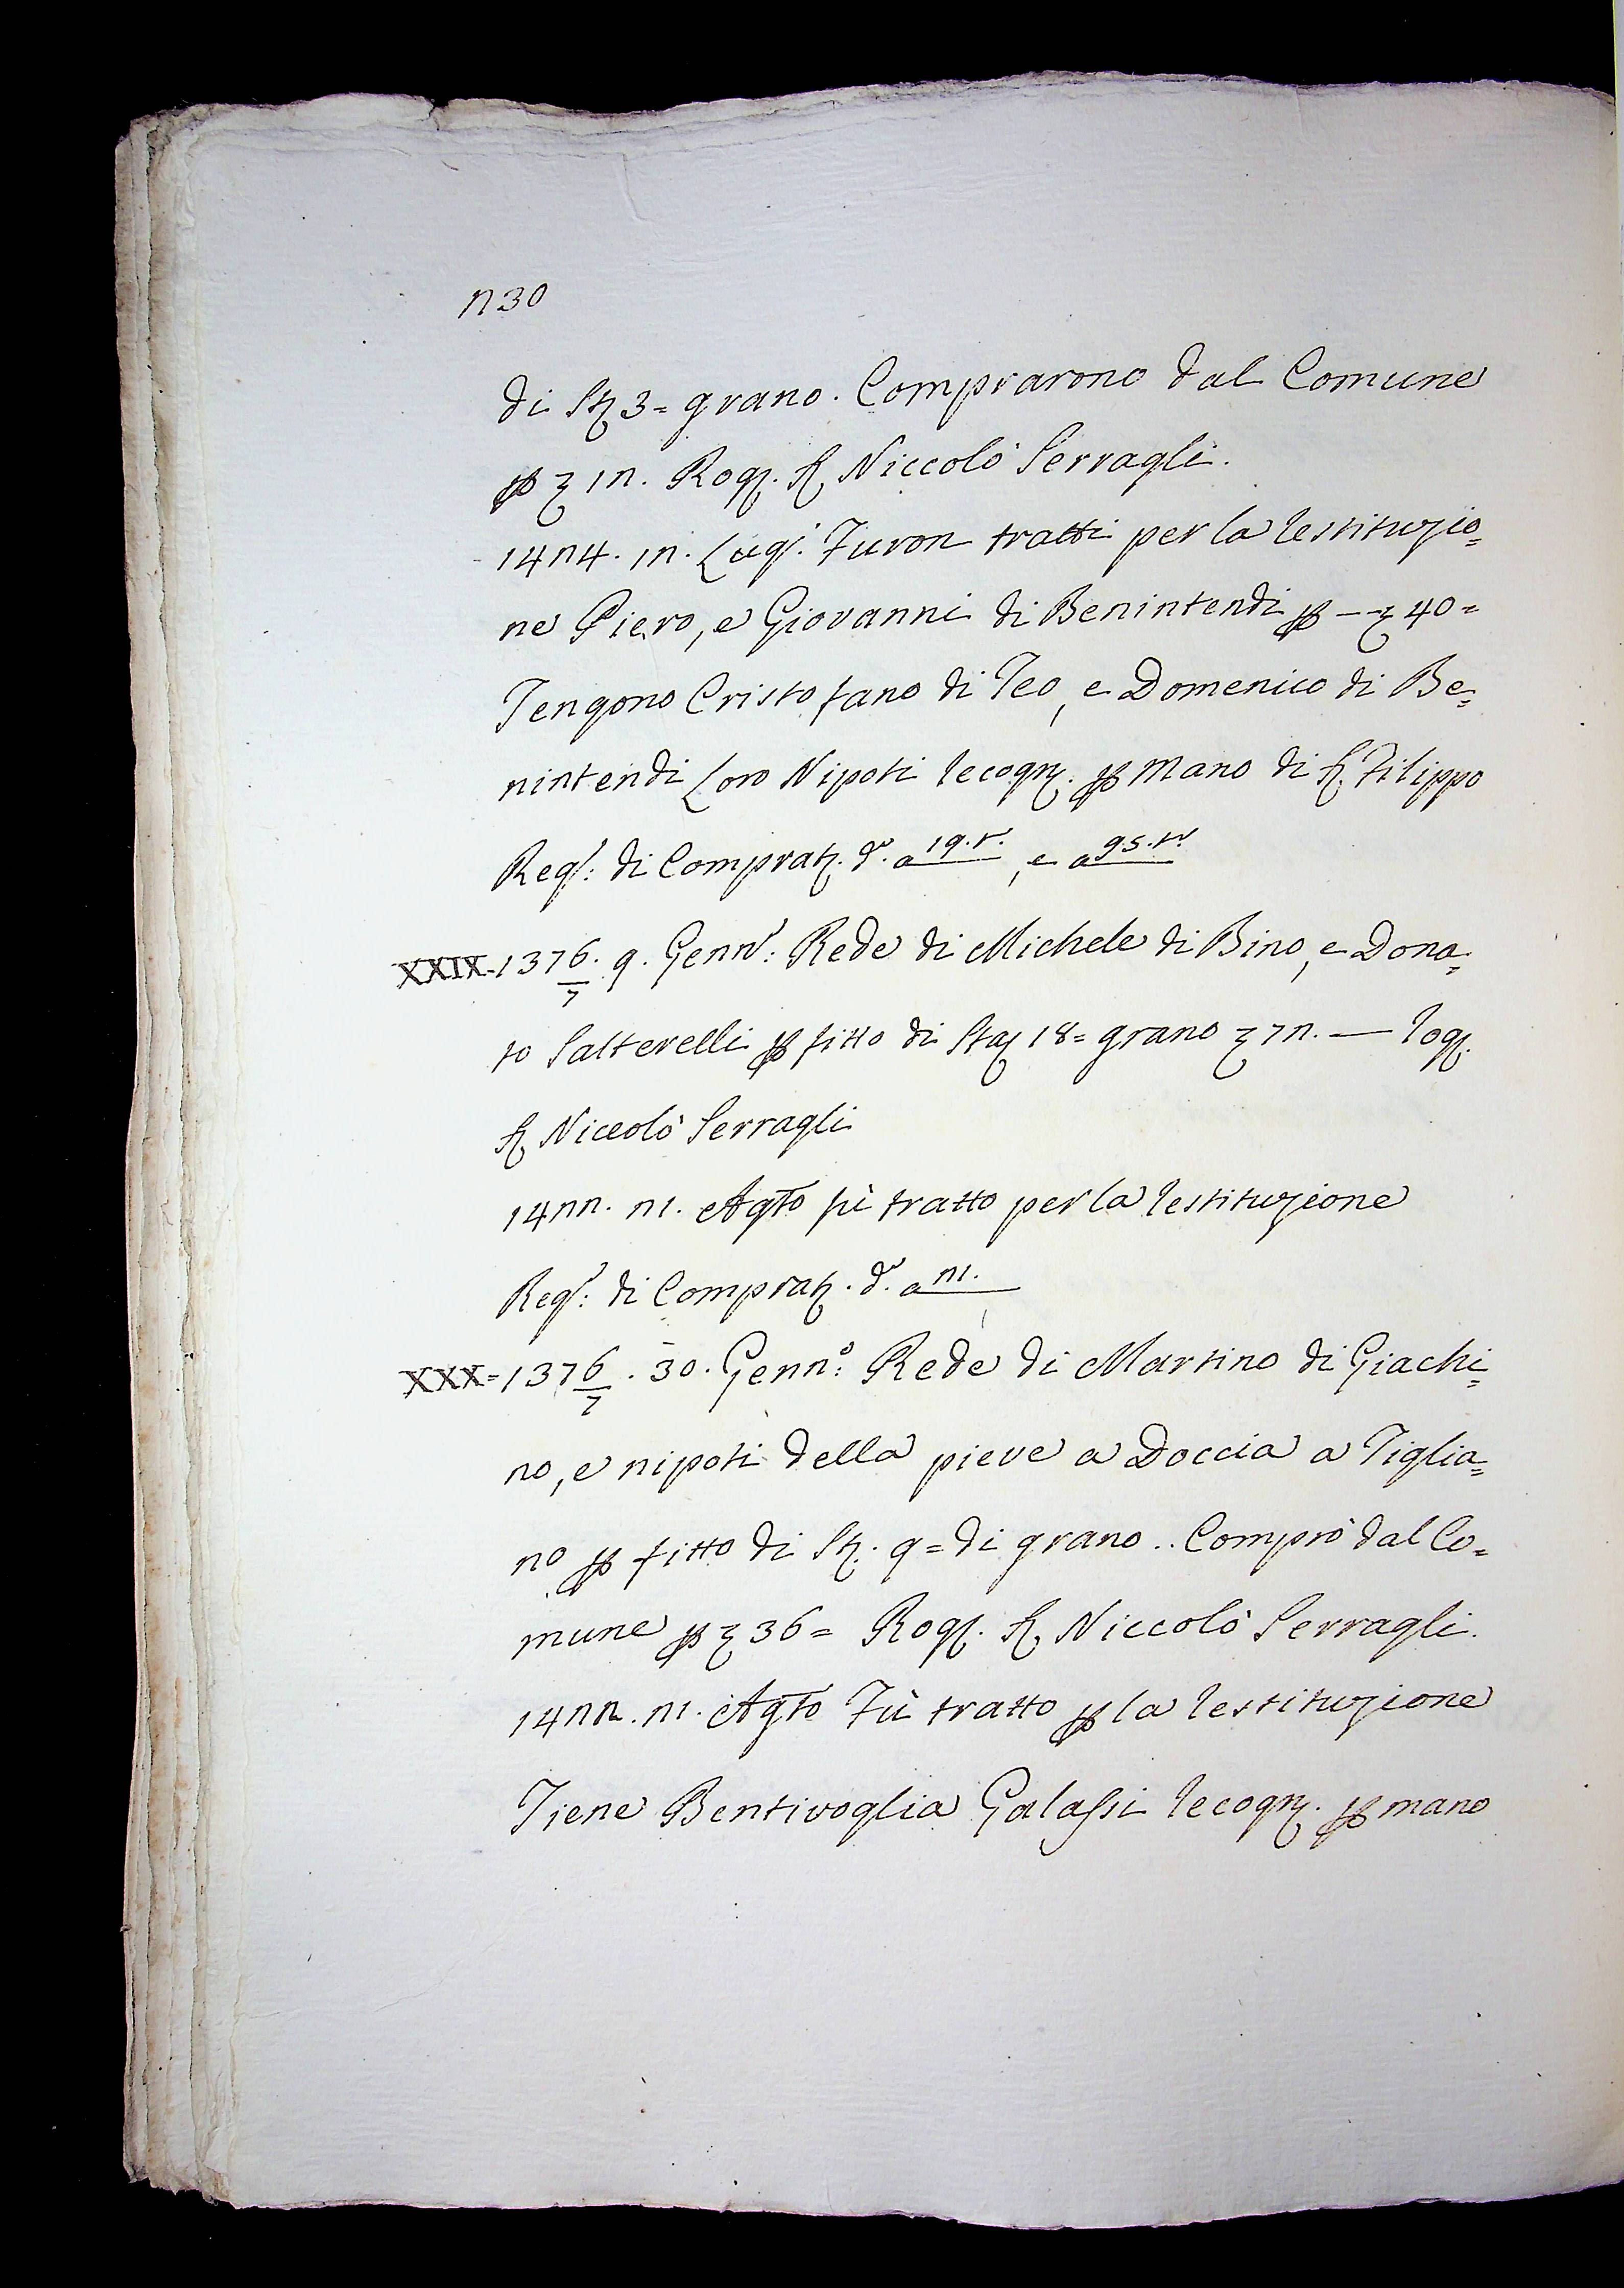 230
di St. 3= grano. Comprarono dal Comune
p ʒ 12. Rog. S. Niccolò Serragli.
1424. 12. Lugˡ. Furon tratti per la restituzio=
ne Piero, e Giovanni di Benintendi p — ʒ 40=
Tengono Cristofano di Teo, e Domenico di Be=
nintendi Loro Nipoti recogn. p mano di S. Filippo
Regˡ: di Comprat. dº. a 19.t. , e a 95.t.
XXIX- 1376/7. 9. Gennº: Rede di Michele di Bino, e Dona=
to Salterelli p fitto di Sta 18= grano ʒ 72. — rog.
S. Niccolò Serragli
1422. 21. Agto fù tratto per la restituzione
Regˡ: di Comprat. dº. a 21.
XXX= 1376/7. 30. Gennº: Rede di Martino di Giachi=
no, e nipoti della pieve a Doccia a Tiglia=
no p fitto di St. 9= di grano.. Comprò dal Co=
mune p ʒ 36= Rog. S. Niccolò Serragli.
1422. 21. Agto Fù tratto p la restituzione
Tiene Bentivoglia Galassi recogn. p mano